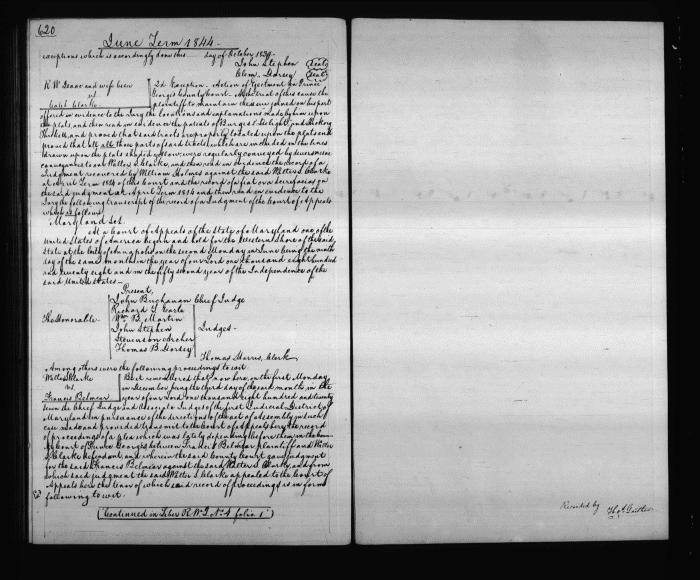 620
June Term 1844
exceptions which is accordingly done this day of October 1839
John Stephen (Seal)
Clem. Dorsey (Seal)
R W and wife been
vs
Caleb Clarke
2d Exception. Action of Ejectment in Prince
Georges County Court. At the trial of this cause the
plaintiff to maintain the issue joined on his part
offered in evidence to the Jury the locations and explanations made by him upon
the plats, and then read in evidence the patents of Burgis's delight, and
and proved that said tracts are properly located upon the plats and
proved that all those parts of said tracts which are included in the lines
drawn upon the plats were regularly conveyed by
conveyances to Walter S. Clarke, and then read in evidence the record of a
Judgment recovered by William Holmes against the said Walter S. Clarke
at April Term 1814 of this Court and the record of a fi fa or a on
the said judgment at April Term 1814 and then read in evidence to the
Jury the following transcript of the record of a Judgment of the Court of Appeals
which as follows
Maryland Sct.
At a Court of Appeals of the State of Maryland one of the
United States of America begun and held for the Western Shore of the said
State at the City of Annapolis on the second Monday in June being the ninth
day of the same month in the year of our Lord one thousand eight hundred
and twenty eight and in the fifty second year of the Independence of the
said United States.
Present.
The Honorable
John Buchanan Chief Judge
Richard T. Earle
Wm B. Martin
John Stephen
Stevenson Archer
Thomas B. Dorsey
Judges
Thomas Harris, Clerk
Among others were the following proceedings to wit
Walter S Clarke
vs.
Francis Belmear
Be it remembered that now here, on the first Monday
in December being the third day of the said month, in the
year of our Lord one thousand eight hundred and twenty
seven the Chief Judge and Associate Judges of the first Judicial District of
Maryland in pursuance of the directions of the act of Assembly in such
case made and provided transmit to the Court of appeals here the record
of proceedings of a plea which was lately depending before them in the
County Court of Prince Georges between Francis Belmear plaintiff and Walter
S Clarke defendant, and wherein the said County Court gave judgment
for the said Francis Belmear against the said Walter S. Clarke, and from
which said judgment the said Walter S Clarke appealed to the Court of
Appeals here the tenor of which said record of proceedings is in form
following to wit.
Continued in Liber R W G No 4 folio 1
Recorded by Thos